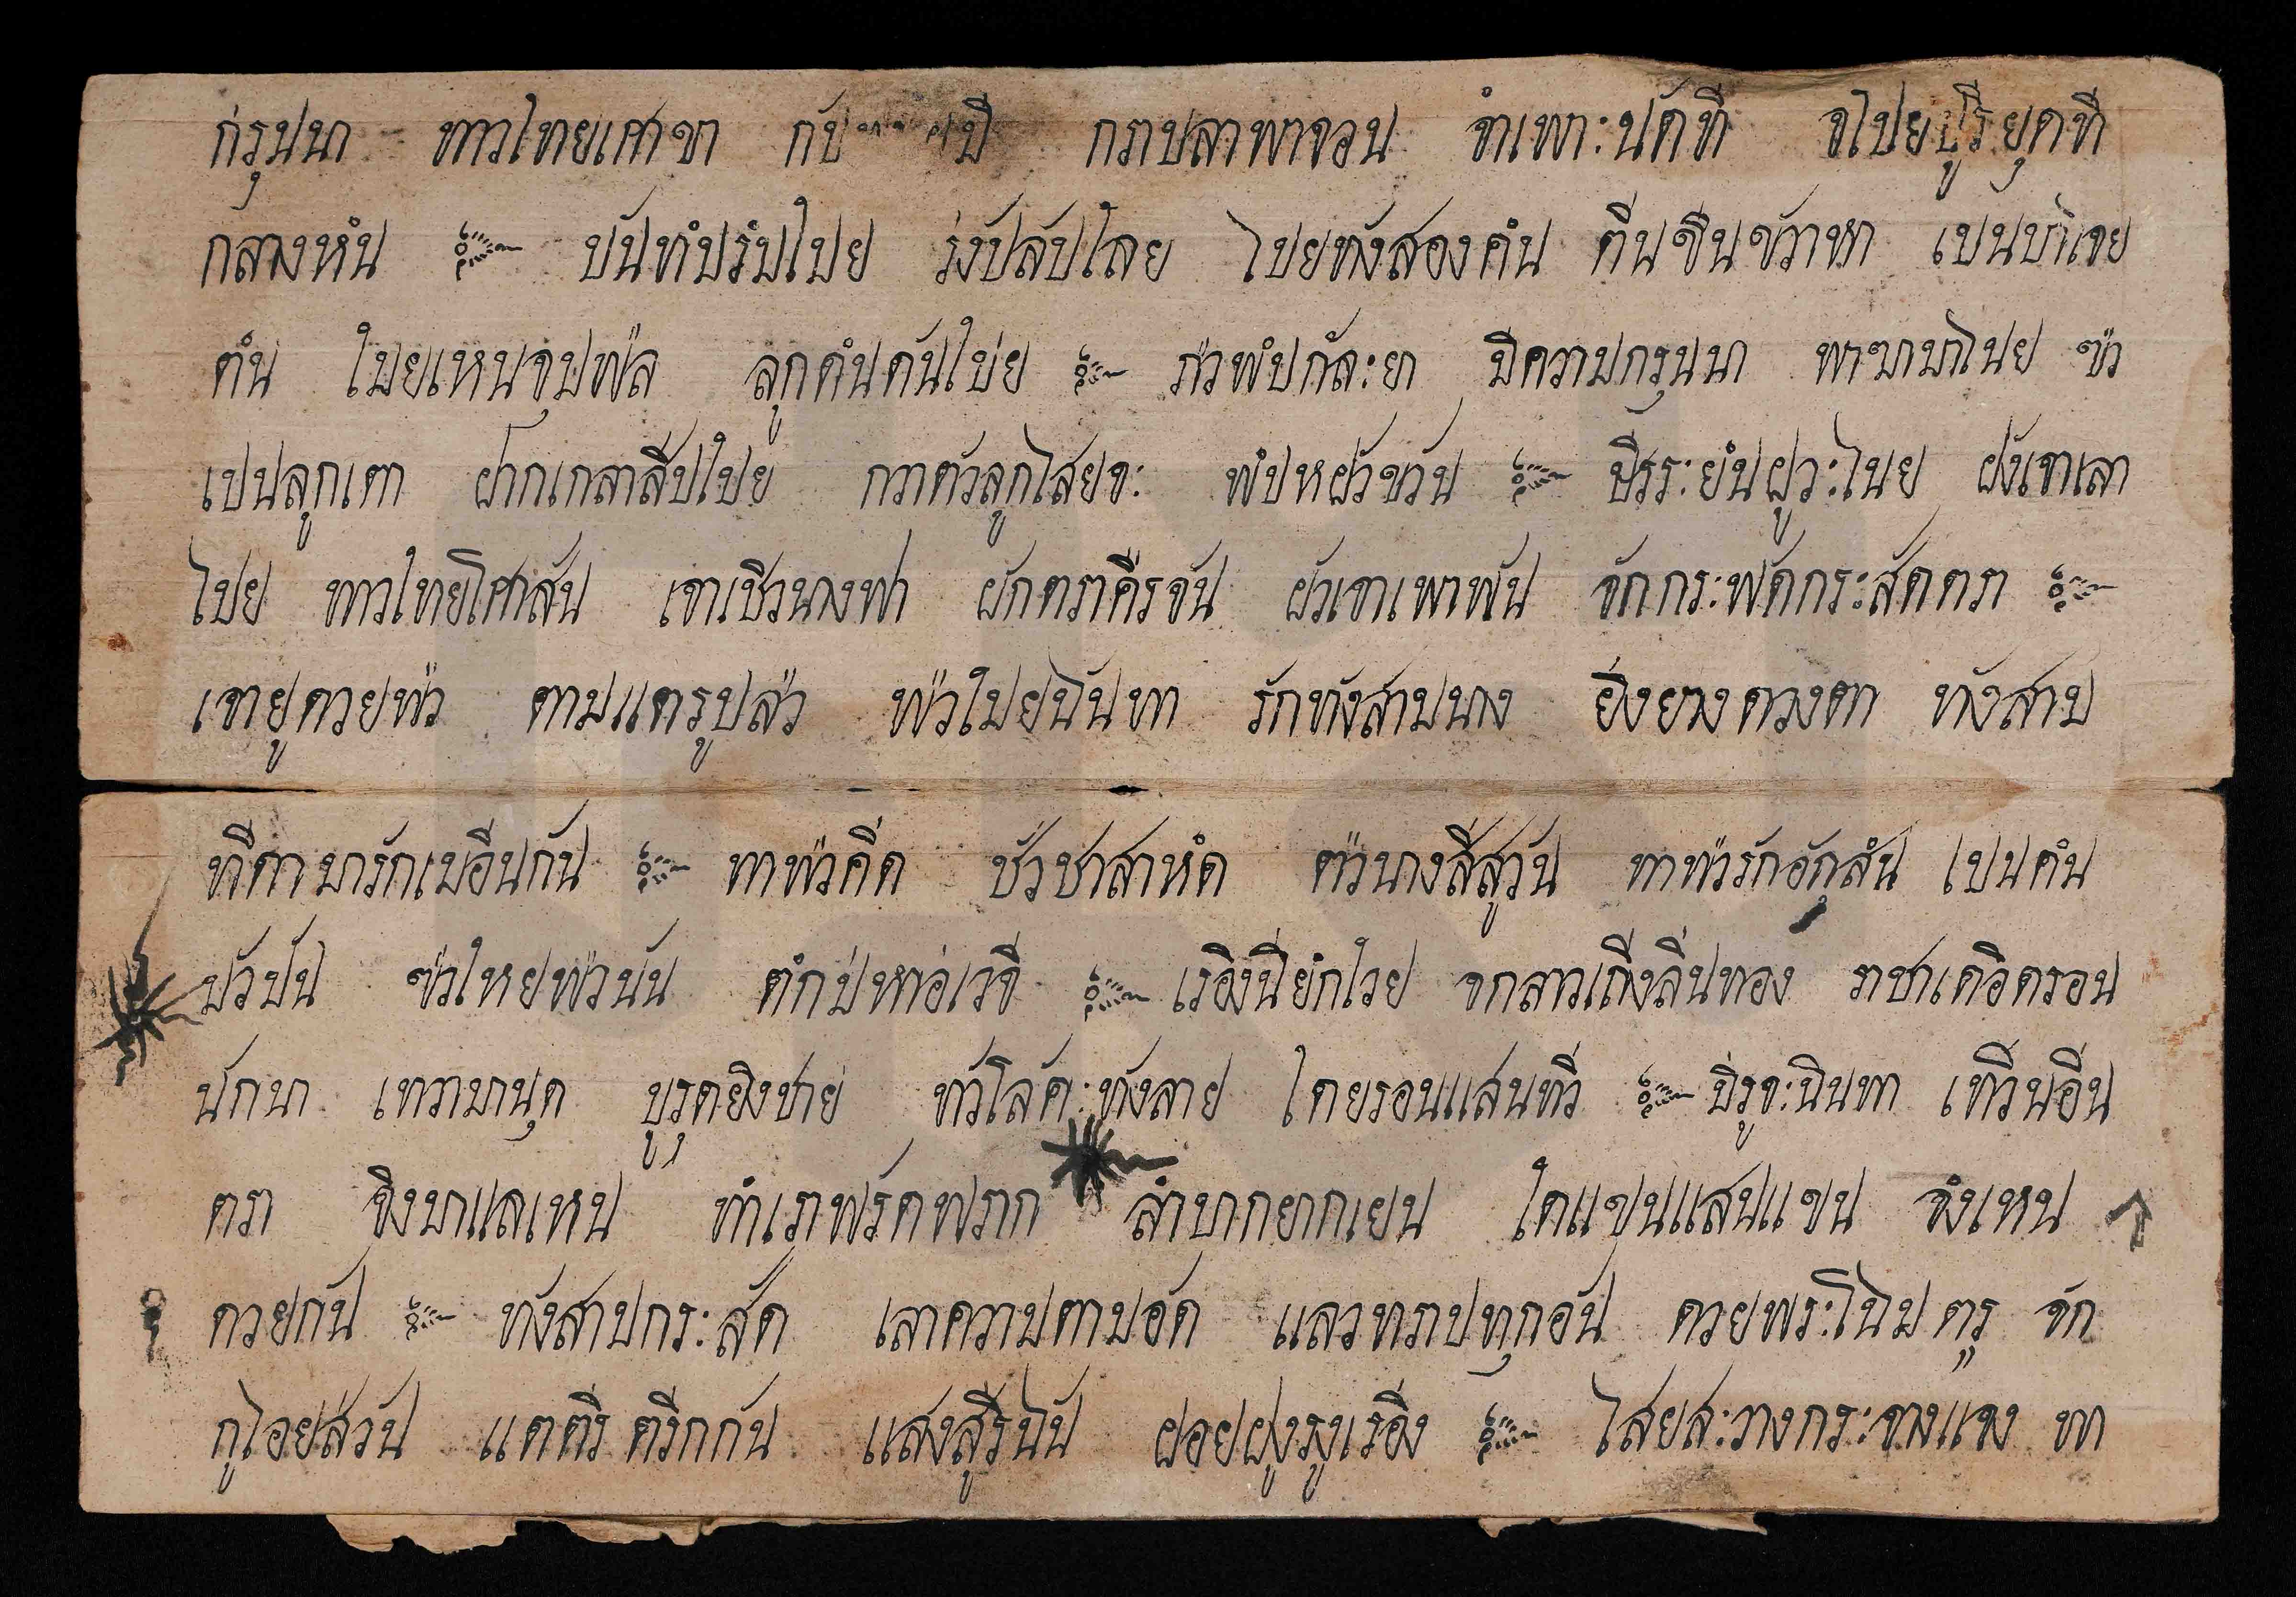 ก่รุนนา ทาวไทยเศาขา กับ มี กราบลาพาจวน จำเพาะนัดที จไปยบูรียุดที
กลางหํน ๛ บันทํบรํบไปย ร่งบัลับไลย ไปยทังสองคํน ตื่นขืนขัวาหา เปนบ่าเจย
ตํน ไมยเหนจุมพ่ล ลูกตํนดันไบ่ย ๛ ก่วพํมกัละยา มีความกรุนนา พาฆามาไนย ข่ว
เปนลูกเตา ฝากเกลาสีปไปย่ กาตัวลูกไสยจะ พํมหฝัวขวัน ๛ มีรระยํนฝูวะไนย ฝังเจาเลา
ไปย ทาวไทยโศาสัน เจาเชีวนางฟา ผักตราคีรจัน ผัวเจาเพาพัน จักกระพัดกระสัดตรา ๛
เจายูดวยพ่ว ตามแตรูปล่ว พ่วไมยนินทา รักทังสามนาง ยิ่งยางดวงตา ทังสาม
ทีดามารักเมอีนกัน ๛ ทาพ่วคีด ชัวชาสาหํด ต่วนางสี่สูวัน ทาพ่วรักอักุสํน เปนคํน
มัวมัน ข่วไหยพ่วนัน ตํกม่หาอ่เวจี ๛ เรอีงนี่ยํกไวย จกลาวเถิงลิ่นทอง ราชาเดอีดรอน
นักนา เทวามานุด บูรุดยิงชาย่ ทัวโลค้ะทังลาย ไดยรอนแสนทีว ๛ มิ่รูจะนินทา เทีวนอีน
ตรา จิงมาแลเหน ทำเราพรัดพราก ลำบากยากเยน ใดแขนแสนแขน จํงเหน
ดวยกัน ๛ ทังสามกระสัด เลาความตามอัด แลวทราบทุกอัน ดวยพระโนิม ตรู จัก
กูไอย่สวัน แตตรี ตรีกกัน แสงสูรีนัน ฝอยฝูงรูงเรอีง ๛ ไสยสะวางกระจางแจง ทา